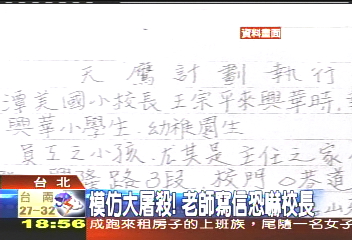 資料畫面
天鷹計劃執行
潭美國小校長王宗平來興華時,
興華小學生.幼稚園生
員工之小孩.尤其是主任之家
路3段 校門 巷道
台北
台南
27-32
模仿大屠殺!老師寫信恐嚇校長
18:56
成跑來租房子的上班族,尾隨一名女子